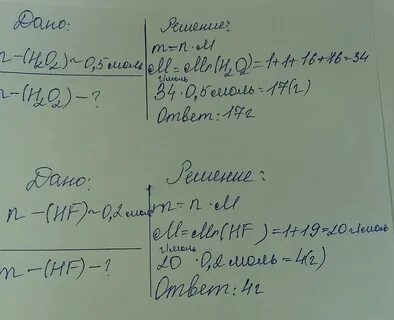 Дано:
n-(H₂O₂)~0,5моль
m-(H₂O₂)-?
Решение:
m=n·M
M=Mr(H₂O₂)=1+1+16+16=34
г/моль
34·0,5моль=17(г)
Ответ: 17г
Дано:
n-(HF)~0,2моль
m-(HF)-?
Решение:
m=n·M
M=Mr(HF)=1+19=20 г/моль
г/моль
20·0,2моль=4(г)
Ответ: 4г